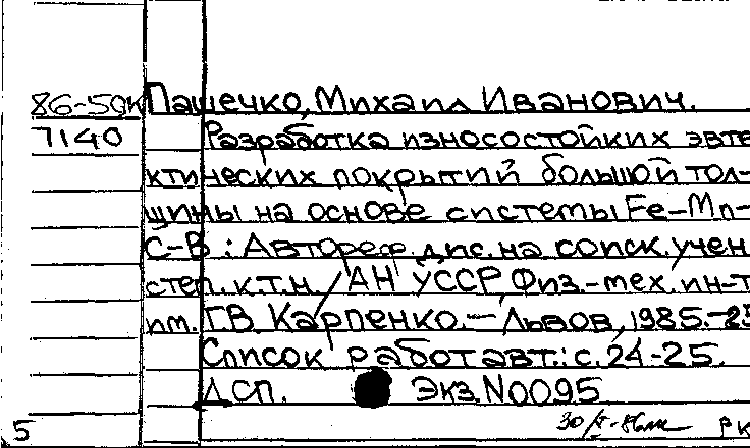 86-50к Пашечко, Михаил Иванович.
7140 Разработка износостойких эвте
ктических покрытий большой тол-
щины на основе системы Fe-Mn-
C-B : Автореф. дис. на соиск. учен
степ. к.т.н. / АН УССР, Физ.-мех. ин-т
им. Г.В. Карпенко. - Львов, 1985. - 25
Список работ авт.: с. 24-25.
ДСП. Экз. N0095
5 РК